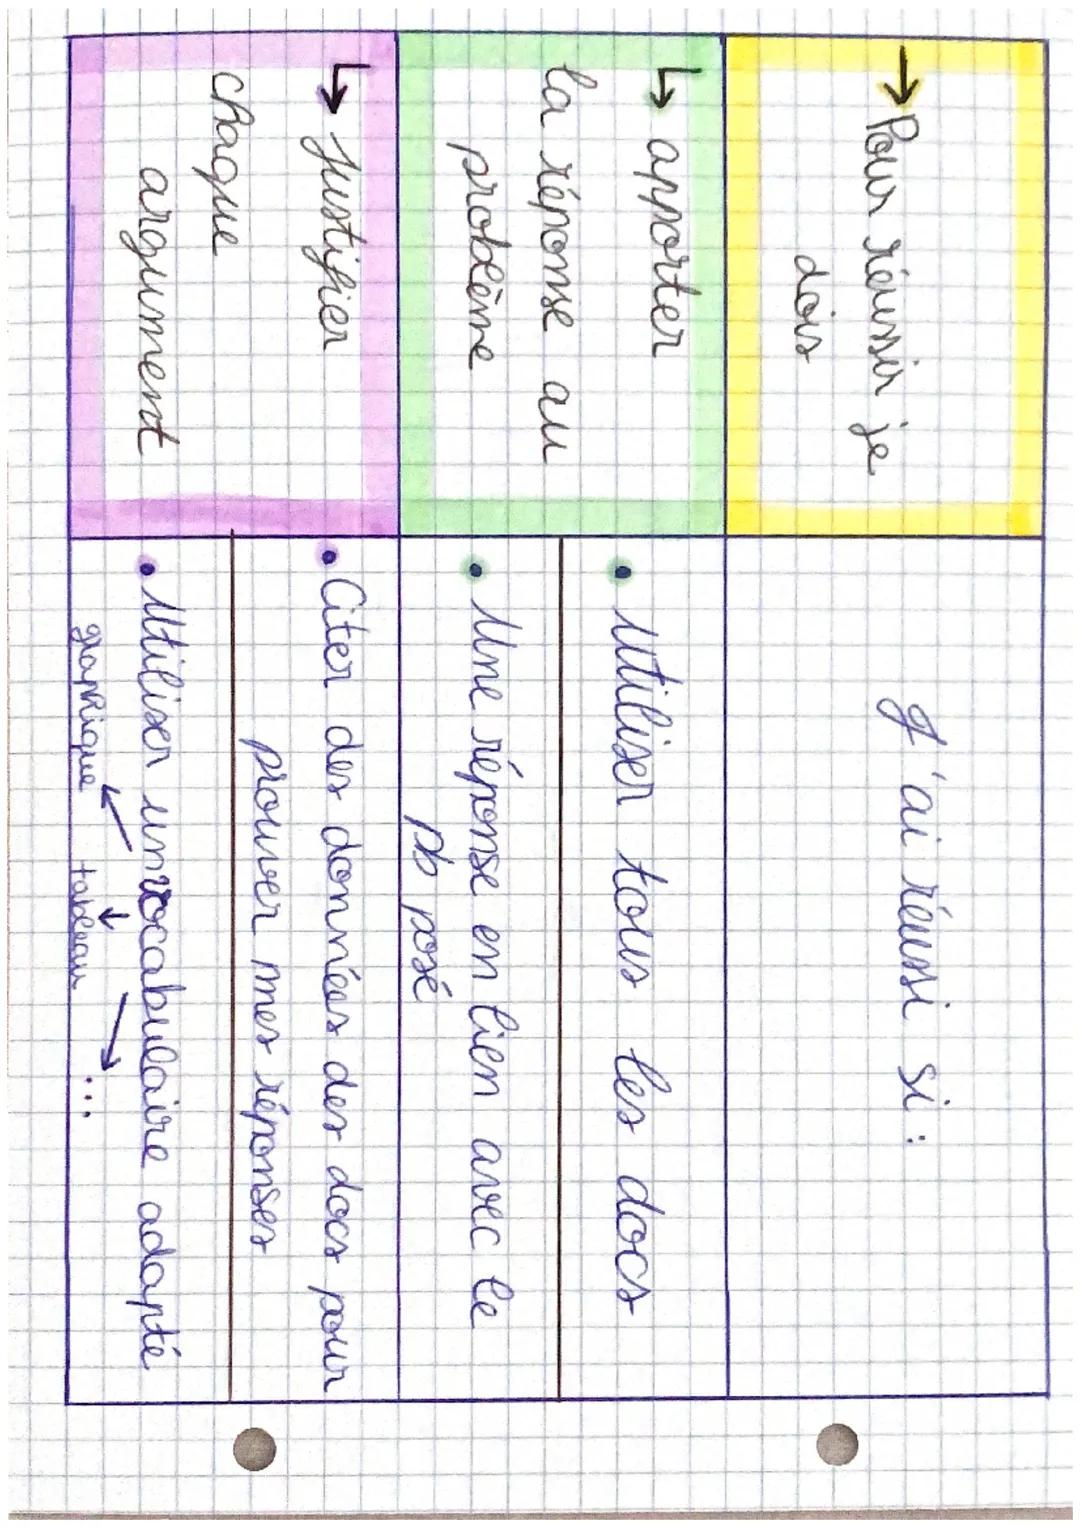 → Pour réussir je
dois
J'ai réussi si :
↳ apporter
la réponse au
problème
• Utiliser tous les docs
• Une réponse en lien avec le
pb posé
↳ Justifier
chaque
argument
• Citer des données des docs pour
prouver mes réponses
• Utiliser un vocabulaire adapté
graphique tableau ...